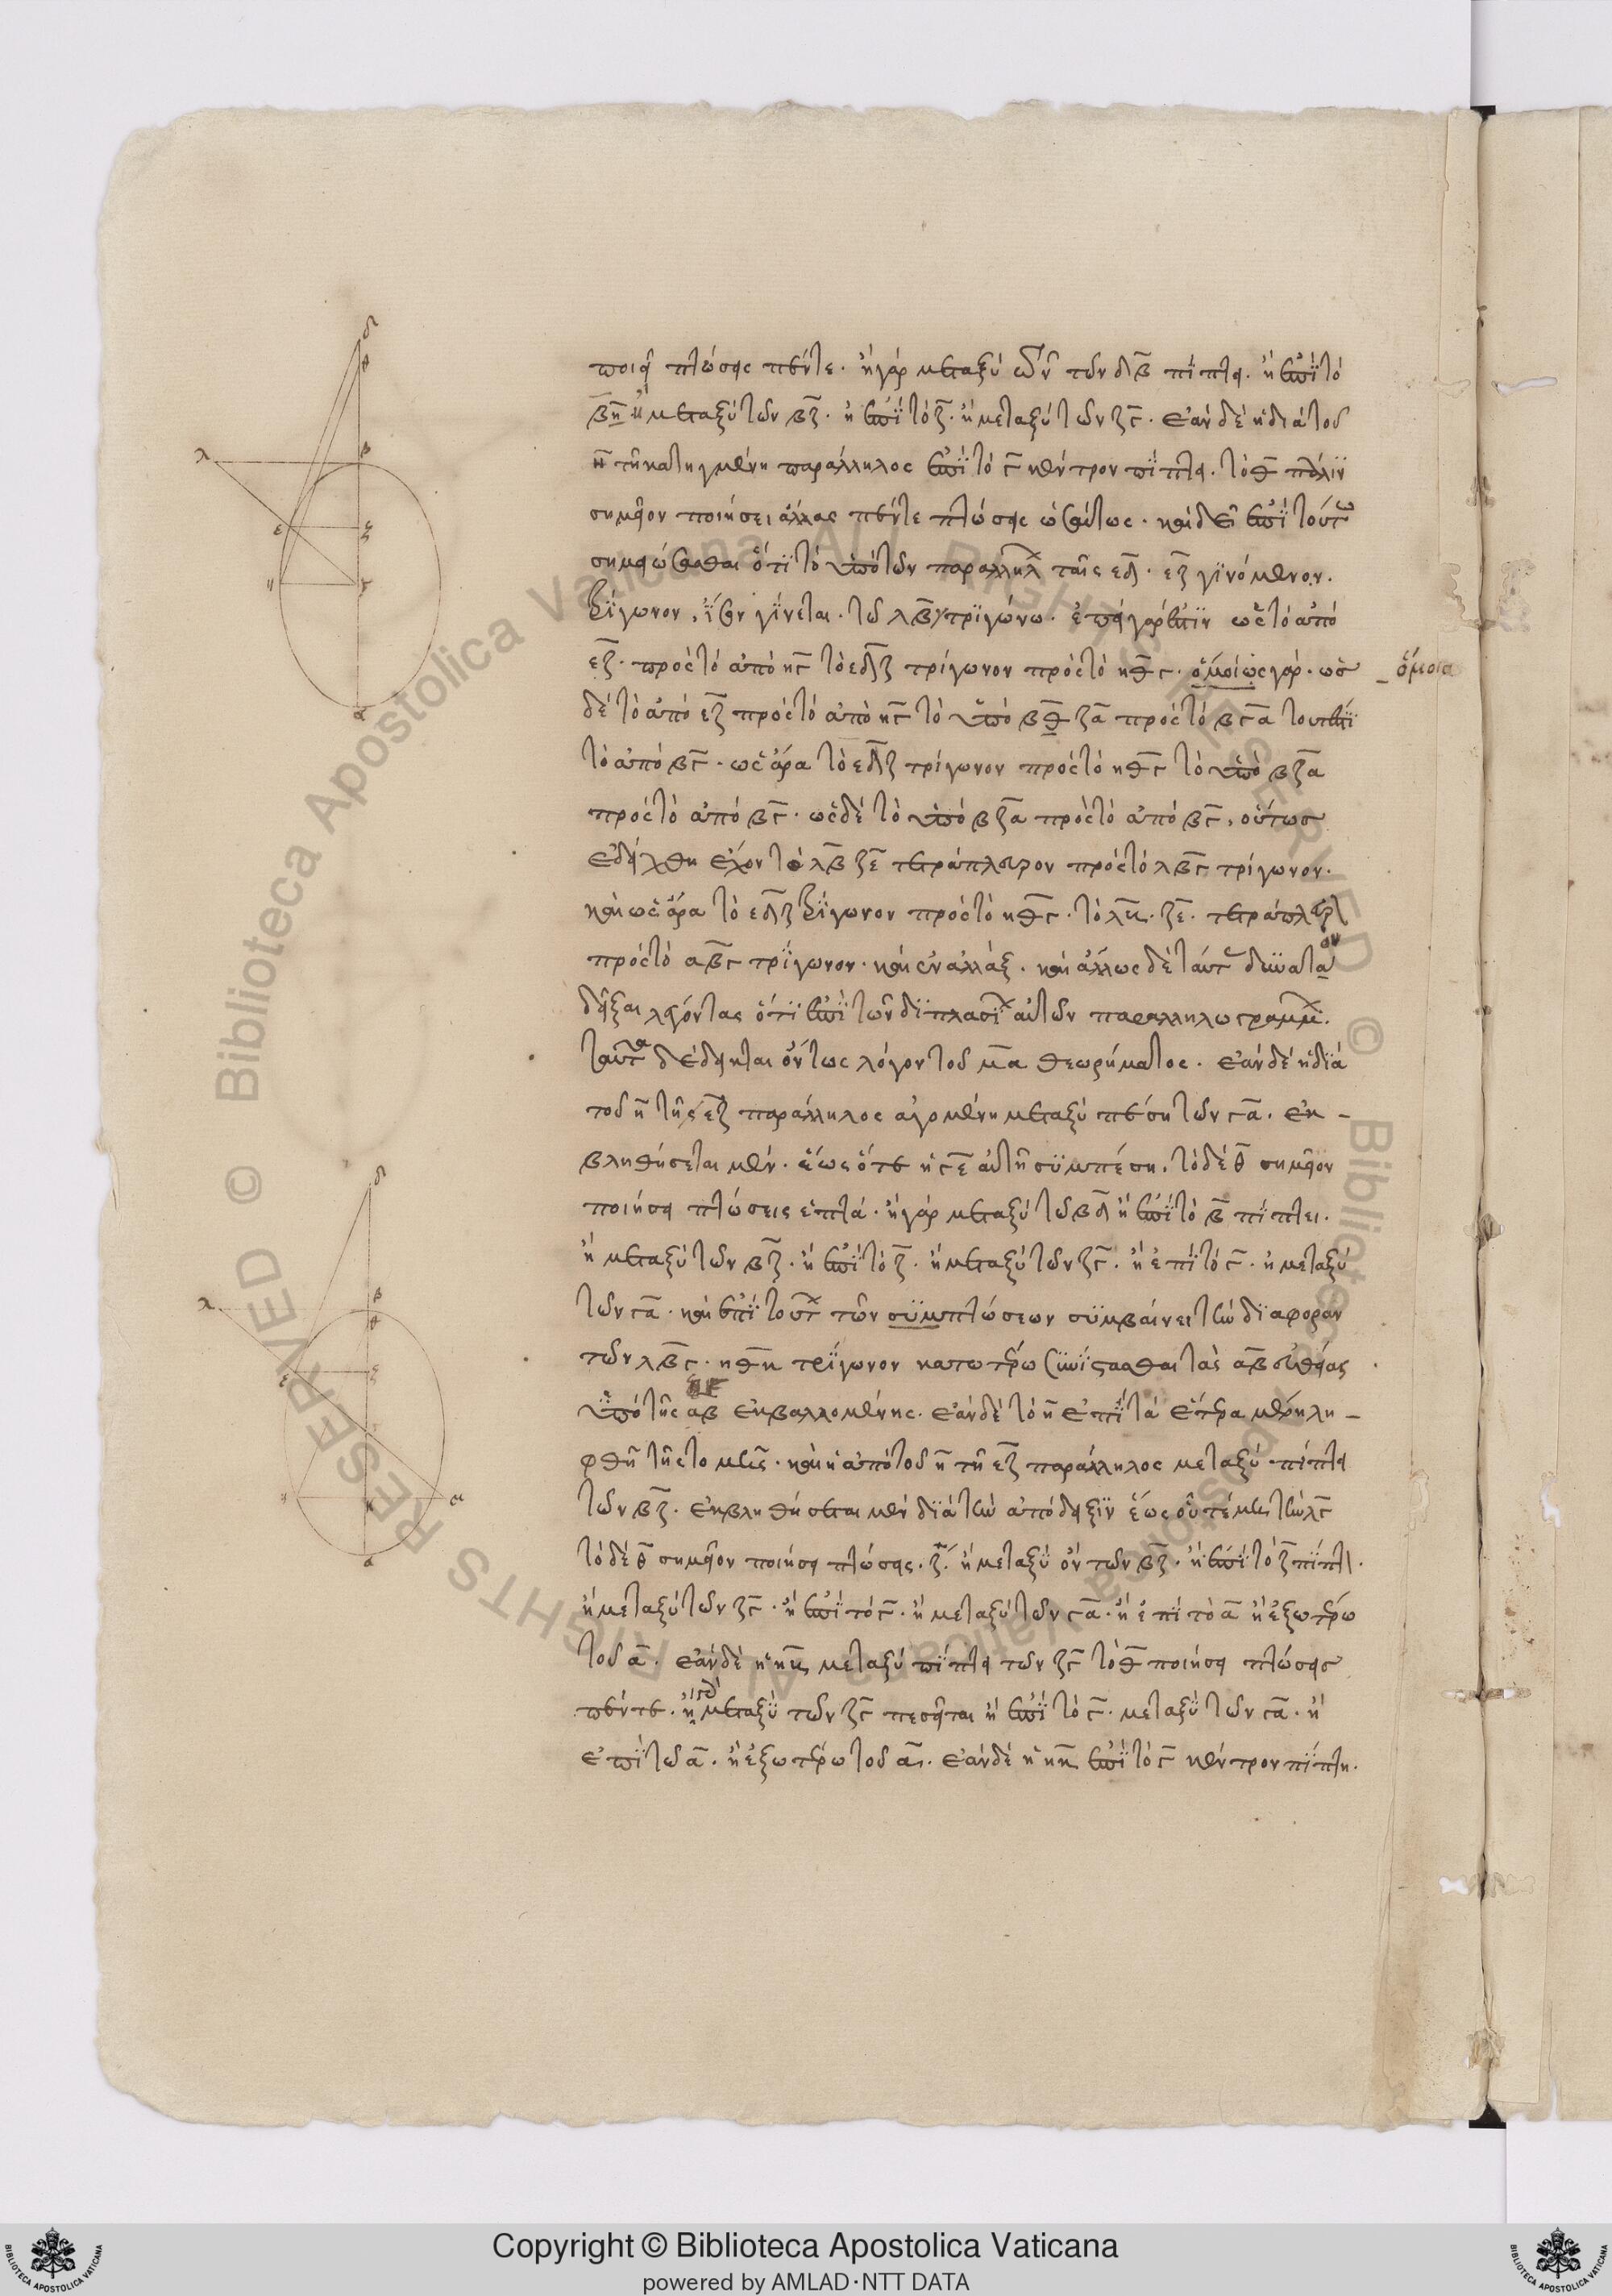 ποιεῖ πτώσεις πέντε· ἢ γὰρ μεταξὺ τῶν δβ πίπτει· ἢ ἐπὶ τὸ
β· ἢ μεταξὺ τῶν βζ· ἢ ἐπὶ τὸ ζ· ἢ μεταξὺ τῶν ζγ· ἐὰν δὲ ἡ διὰ τοῦ
η τῆ κατηγμένη παράλληλος ἐπὶ τὸ γ κέντρον πίπτει· τὸ θ πάλιν
σημεῖον ποιήσει ἄλλας πέντε πτώσεις ὡσαύτως· καὶ δεῖ ἐπὶ τούτω
σημειώσασθαι ὅτι τὸ ὑπὸ τῶν παραλλήλ ταῖς εδ· εζ γινόμενον·
τρίγωνον, ἴσον γίνεται· τῶ λβγ τριγώνω· ἐπεὶ γάρ ἐστιν ὡς τὸ ἀπὸ
εζ· πρὸς τὸ ἀπὸ ηγ τὸ εδζ τρίγωνον πρὸς τὸ ηθγ· ὁμοίως γάρ· ὡς
ὅμοια
δὲ τὸ ἀπὸ εζ πρὸς τὸ ἀπὸ ηγ τὸ ὑπὸ βθ ζα πρὸς τὸ βγα τουτέστι
τὸ ἀπὸ βγ· ὡς ἄρα τὸ εδζ τρίγωνον πρὸς τὸ ηθγ τὸ ὑπὸ βζα
πρὸς τὸ ἀπὸ βγ· ὡς δὲ τὸ ὑπὸ βζα πρὸς τὸ ἀπὸ βγ, οὕτως
ἐδείχθη ἔχον τὸ λβ ζε τετράπλευρον πρὸς τὸ λβγ τρίγωνον·
καὶ ὡς ἄρα τὸ εδζ τρίγωνον πρὸς τὸ ηθγ· τὸ λβ· ζε· τετράπλευρ
πρὸς τὸ αβγ τρίγωνον· καὶ ἐναλλάξ· καὶ ἄλλως δὲ ταύτ δυνατὸν
δεῖξαι λέγοντας ὅτι ἐπὶ τῶν διπλασί αὐτῶν παραλληλωγραμμ·
ταῦτα δέδεικται ὄντως λόγον τοῦ μα θεωρήματος· ἐὰν δὲ ἡ διὰ
τοῦ η τῆς εζ παράλληλος ἀγομένη μεταξὺ πέση τῶν γα· ἐκ-
βληθήσεται μέν· ἕως ὅτε ἡ γε αὐτῆ συμπέση· τὸ δὲ θ σημεῖον
ποιήσει πτώσεις ἑπτά· ἢ γὰρ μεταξὺ τῶ βδ ἢ ἐπὶ τὸ β πίπτει·
ἢ μεταξὺ τῶν βζ· ἢ ἐπὶ τὸ ζ· ἢ μεταξὺ τῶν ζγ· ἢ ἐπὶ τὸ γ· ἢ μεταξὺ
τῶν γα· καὶ ἐπὶ τούτ τῶν συμπτώσεων συμβαίνει τὴν διαφορὰν
τῶν λβγ· ηθκ τρίγωνον κατωτέρω συνίστασθαι τὰς αβ εὐθείας
ὑπὸ τῆς αβ ἐκβαλλομένης· ἐὰν δὲ τὸ η ἐπὶ τὰ ἕτερα μέρη λη-
φθῆ τῆς τομῆς· καὶ ἡ ἀπὸ τοῦ η τῆ εζ παράλληλος μεταξὺ πίπτει
τῶν βζ· ἐκβληθήσεται μὲν διὰ τὴν ἀπόδειξιν ἕως οὗ τέμει τὴν λγ
τὸ δὲ θ σημεῖον ποιήσει πτώσεις· ζ· ἢ μεταξὺ ὂν τῶν βζ· ἢ ἐπὶ τὸ ζ πίπτ·
ἢ μεταξὺ τῶν ζγ· ἢ ἐπὶ τὸ γ· ἢ μεταξὺ τῶν γα· ἢ ἐπὶ τὸ α ἢ ἐξωτέρω
τοῦ α· ἐὰν δὲ ἡ ηκ μεταξὺ πίπτει τῶν ζγ τὸ θ ποιήσει πτώσεις
πέντε· ἢ μεταξὺ τῶν ζγ πεσεῖται ἢ ἐπὶ τὸ γ· μεταξὺ τῶν γα· ἢ
ἐπὶ τῶ α· ἢ ἐξωτέρω τοῦ α· ἐὰν δὲ ἡ ηκ ἐπὶ τὸ γ κέντρον πίπτη·
Copyright © Biblioteca Apostolica Vaticana
powered by AMLAD·NTT DATA